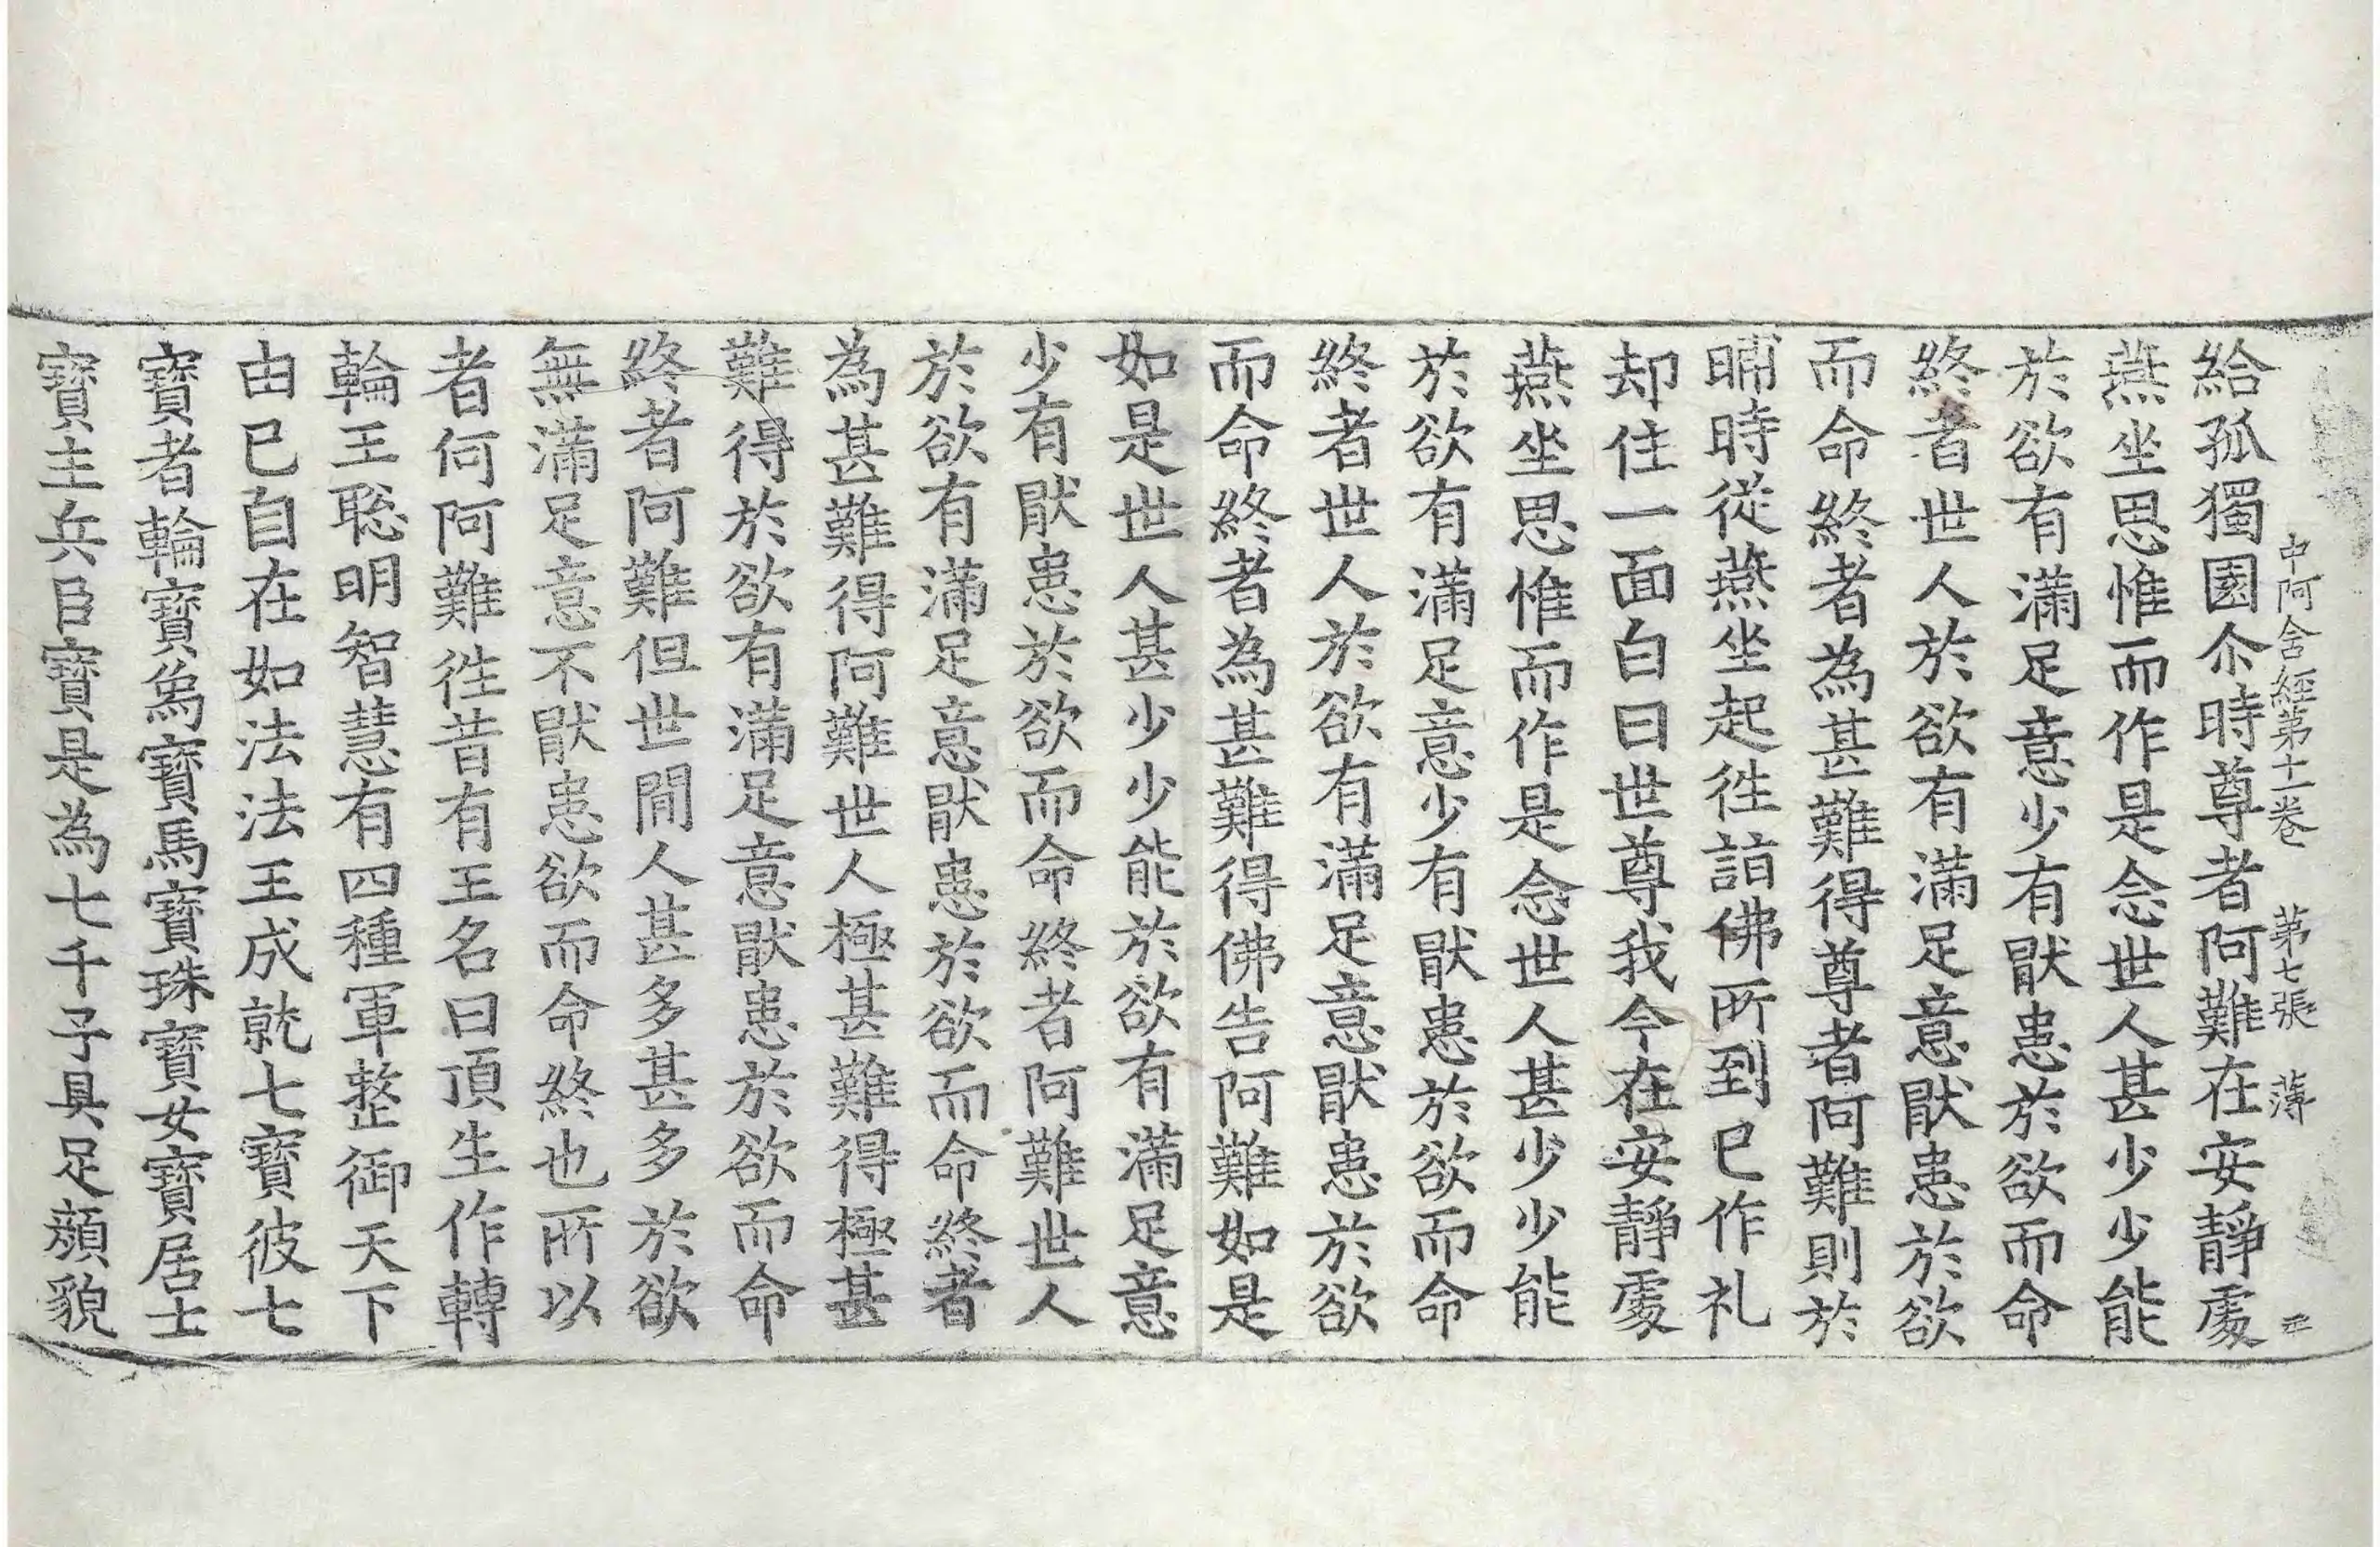 中阿含經第十一卷　第七張　薄
給孤獨園尒時尊者阿難在安靜處
燕坐思惟而作是念世人甚少少能
於欲有滿足意少有猒患於欲而命
終者世人於欲有滿足意猒患於欲
而命終者為甚難得尊者阿難則於
晡時從燕坐起徃詣佛所到已作礼
却住一面白曰世尊我今在安靜處
燕坐思惟而作是念世人甚少少能
於欲有滿足意少有猒患於欲而命
終者世人於欲有滿足意猒患於欲
而命終者為甚難得佛告阿難如是
如是世人甚少少能於欲有滿足意
少有猒患於欲而命終者阿難世人
於欲有滿足意猒患於欲而命終者
為甚難得阿難世人極甚難得極甚
難得於欲有滿足意猒患於欲而命
終者阿難但世間人甚多甚多於欲
無滿足意不猒患欲而命終也所以
者何阿難徃昔有王名曰頂生作轉
輪王聡明智慧有四種軍整御天下
由已自在如法法王成就七寶彼七
寶者輪寶象寶馬寶珠寶女寶居士
寶主兵臣寶是為七千子具足顏貌